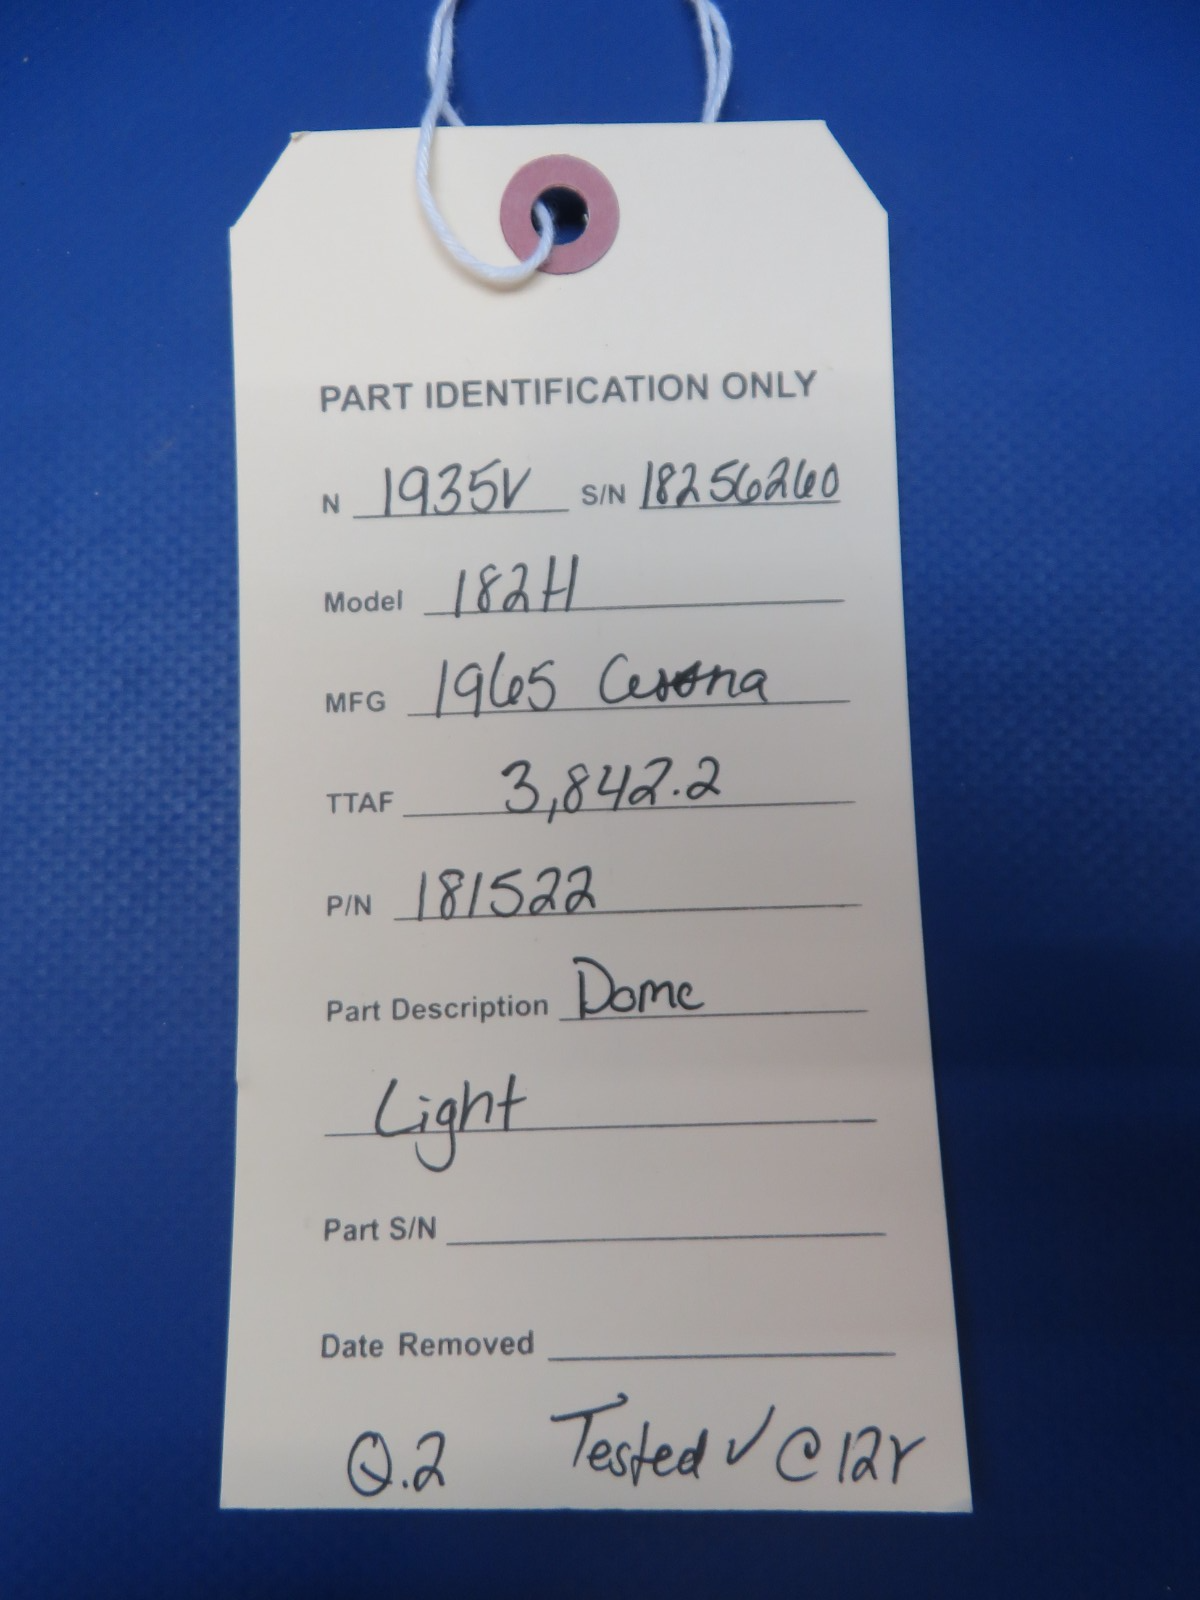 PART IDENTIFICATION ONLY
N 1935V S/N 18256260
Model 182H
MFG 1965 Cessna
TTAF 3,842.2
P/N 181522
Part Description Dome
Light
Part S/N
Date Removed
Q.2 Tested ✓ @ 12V